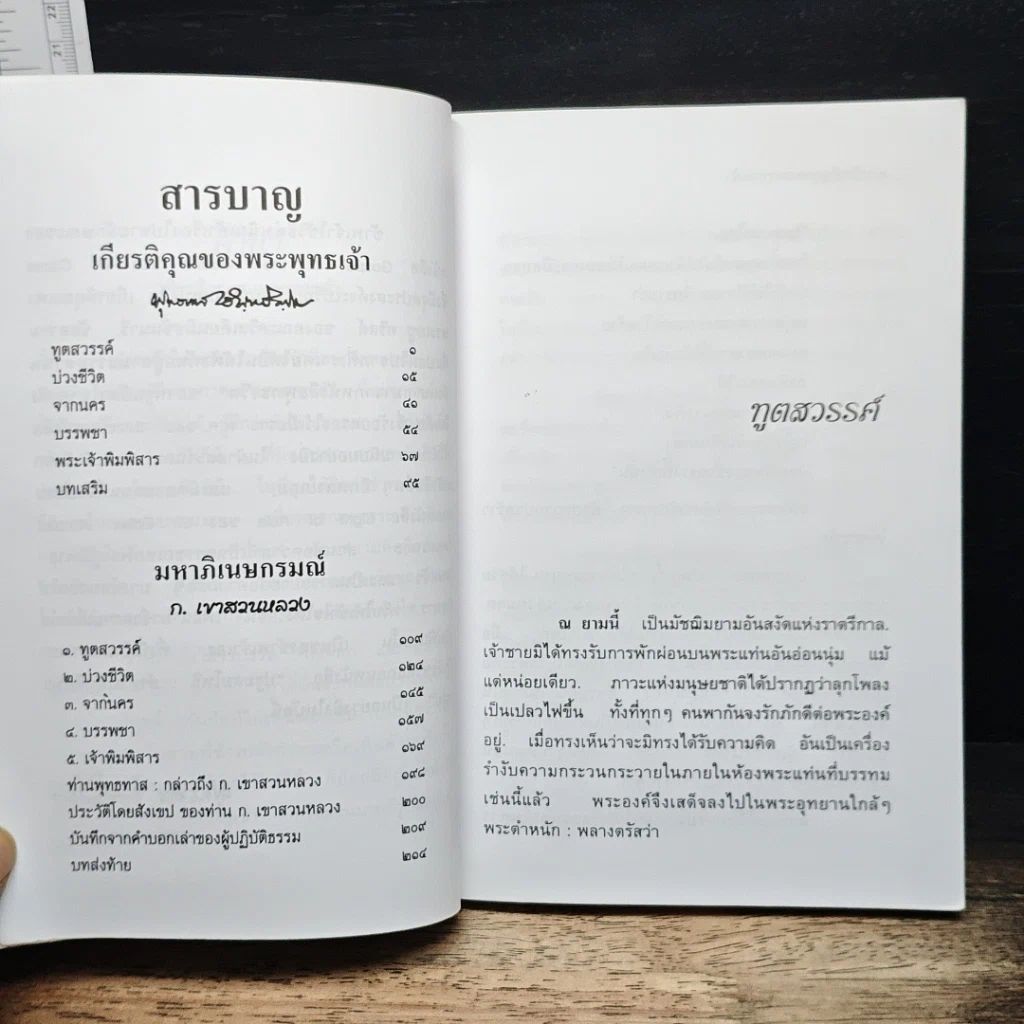 สารบาญ
เกียรติคุณของพระพุทธเจ้า
พุทธทาส อินทปัญโญ
ทูตสวรรค์ ๑
บ่วงชีวิต ๑๕
จากนคร ๔๑
บรรพชา ๕๔
พระเจ้าพิมพิสาร ๖๗
บทเสริม ๙๕
มหาภิเนษกรมณ์
ก. เขาสวนหลวง
๑. ทูตสวรรค์ ๑๐๙
๒. บ่วงชีวิต ๑๒๔
๓. จากนคร ๑๔๕
๔. บรรพชา ๑๕๗
๕. เจ้าพิมพิสาร ๑๖๙
ท่านพุทธทาส : กล่าวถึง ก. เขาสวนหลวง ๑๙๘
ประวัติโดยสังเขป ของท่าน ก. เขาสวนหลวง ๒๐๐
บันทึกจากคำบอกเล่าของผู้ปฏิบัติธรรม ๒๐๙
บทส่งท้าย ๒๑๔
ทูตสวรรค์
ณ ยามนี้ เป็นมัชฌิมยามอันสงัดแห่งราตรีกาล.
เจ้าชายมิได้ทรงรับการพักผ่อนบนพระแท่นอันอ่อนนุ่ม แม้
แต่หน่อยเดียว. ภาวะแห่งมนุษยชาติได้ปรากฏว่าลุกโพลง
เป็นเปลวไฟขึ้น ทั้งที่ทุกๆ คนพากันจงรักภักดีต่อพระองค์
อยู่. เมื่อทรงเห็นว่าจะมิทรงได้รับความคิด อันเป็นเครื่อง
รำงับความกระวนกระวายในภายในห้องพระแท่นที่บรรทม
เช่นนี้แล้ว พระองค์จึงเสด็จลงไปในพระอุทยานใกล้ๆ
พระตำหนัก : พลางตรัสว่า